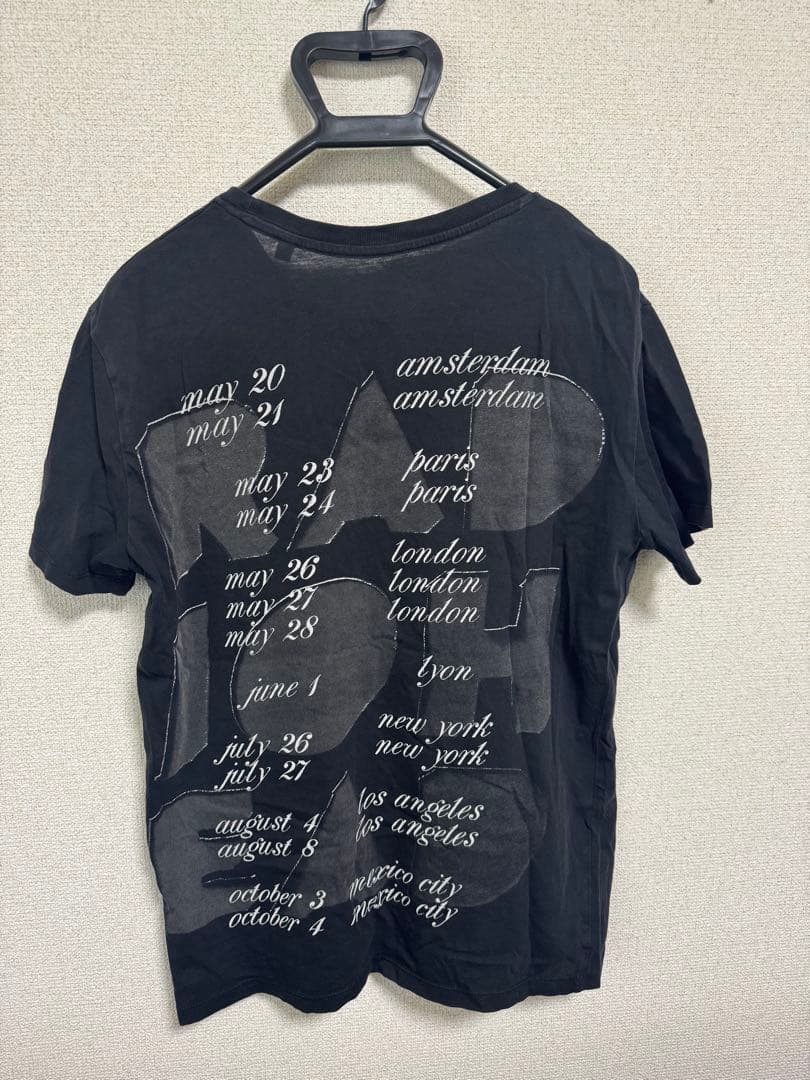 may 20 amsterdam
may 21 amsterdam
may 23 paris
may 24 paris
may 26 london
may 27 london
may 28 london
june 1 lyon
july 26 new york
july 27 new york
august 4 los angeles
august 8 los angeles
october 3 mexico city
october 4 mexico city
RAD
IOH
EAD